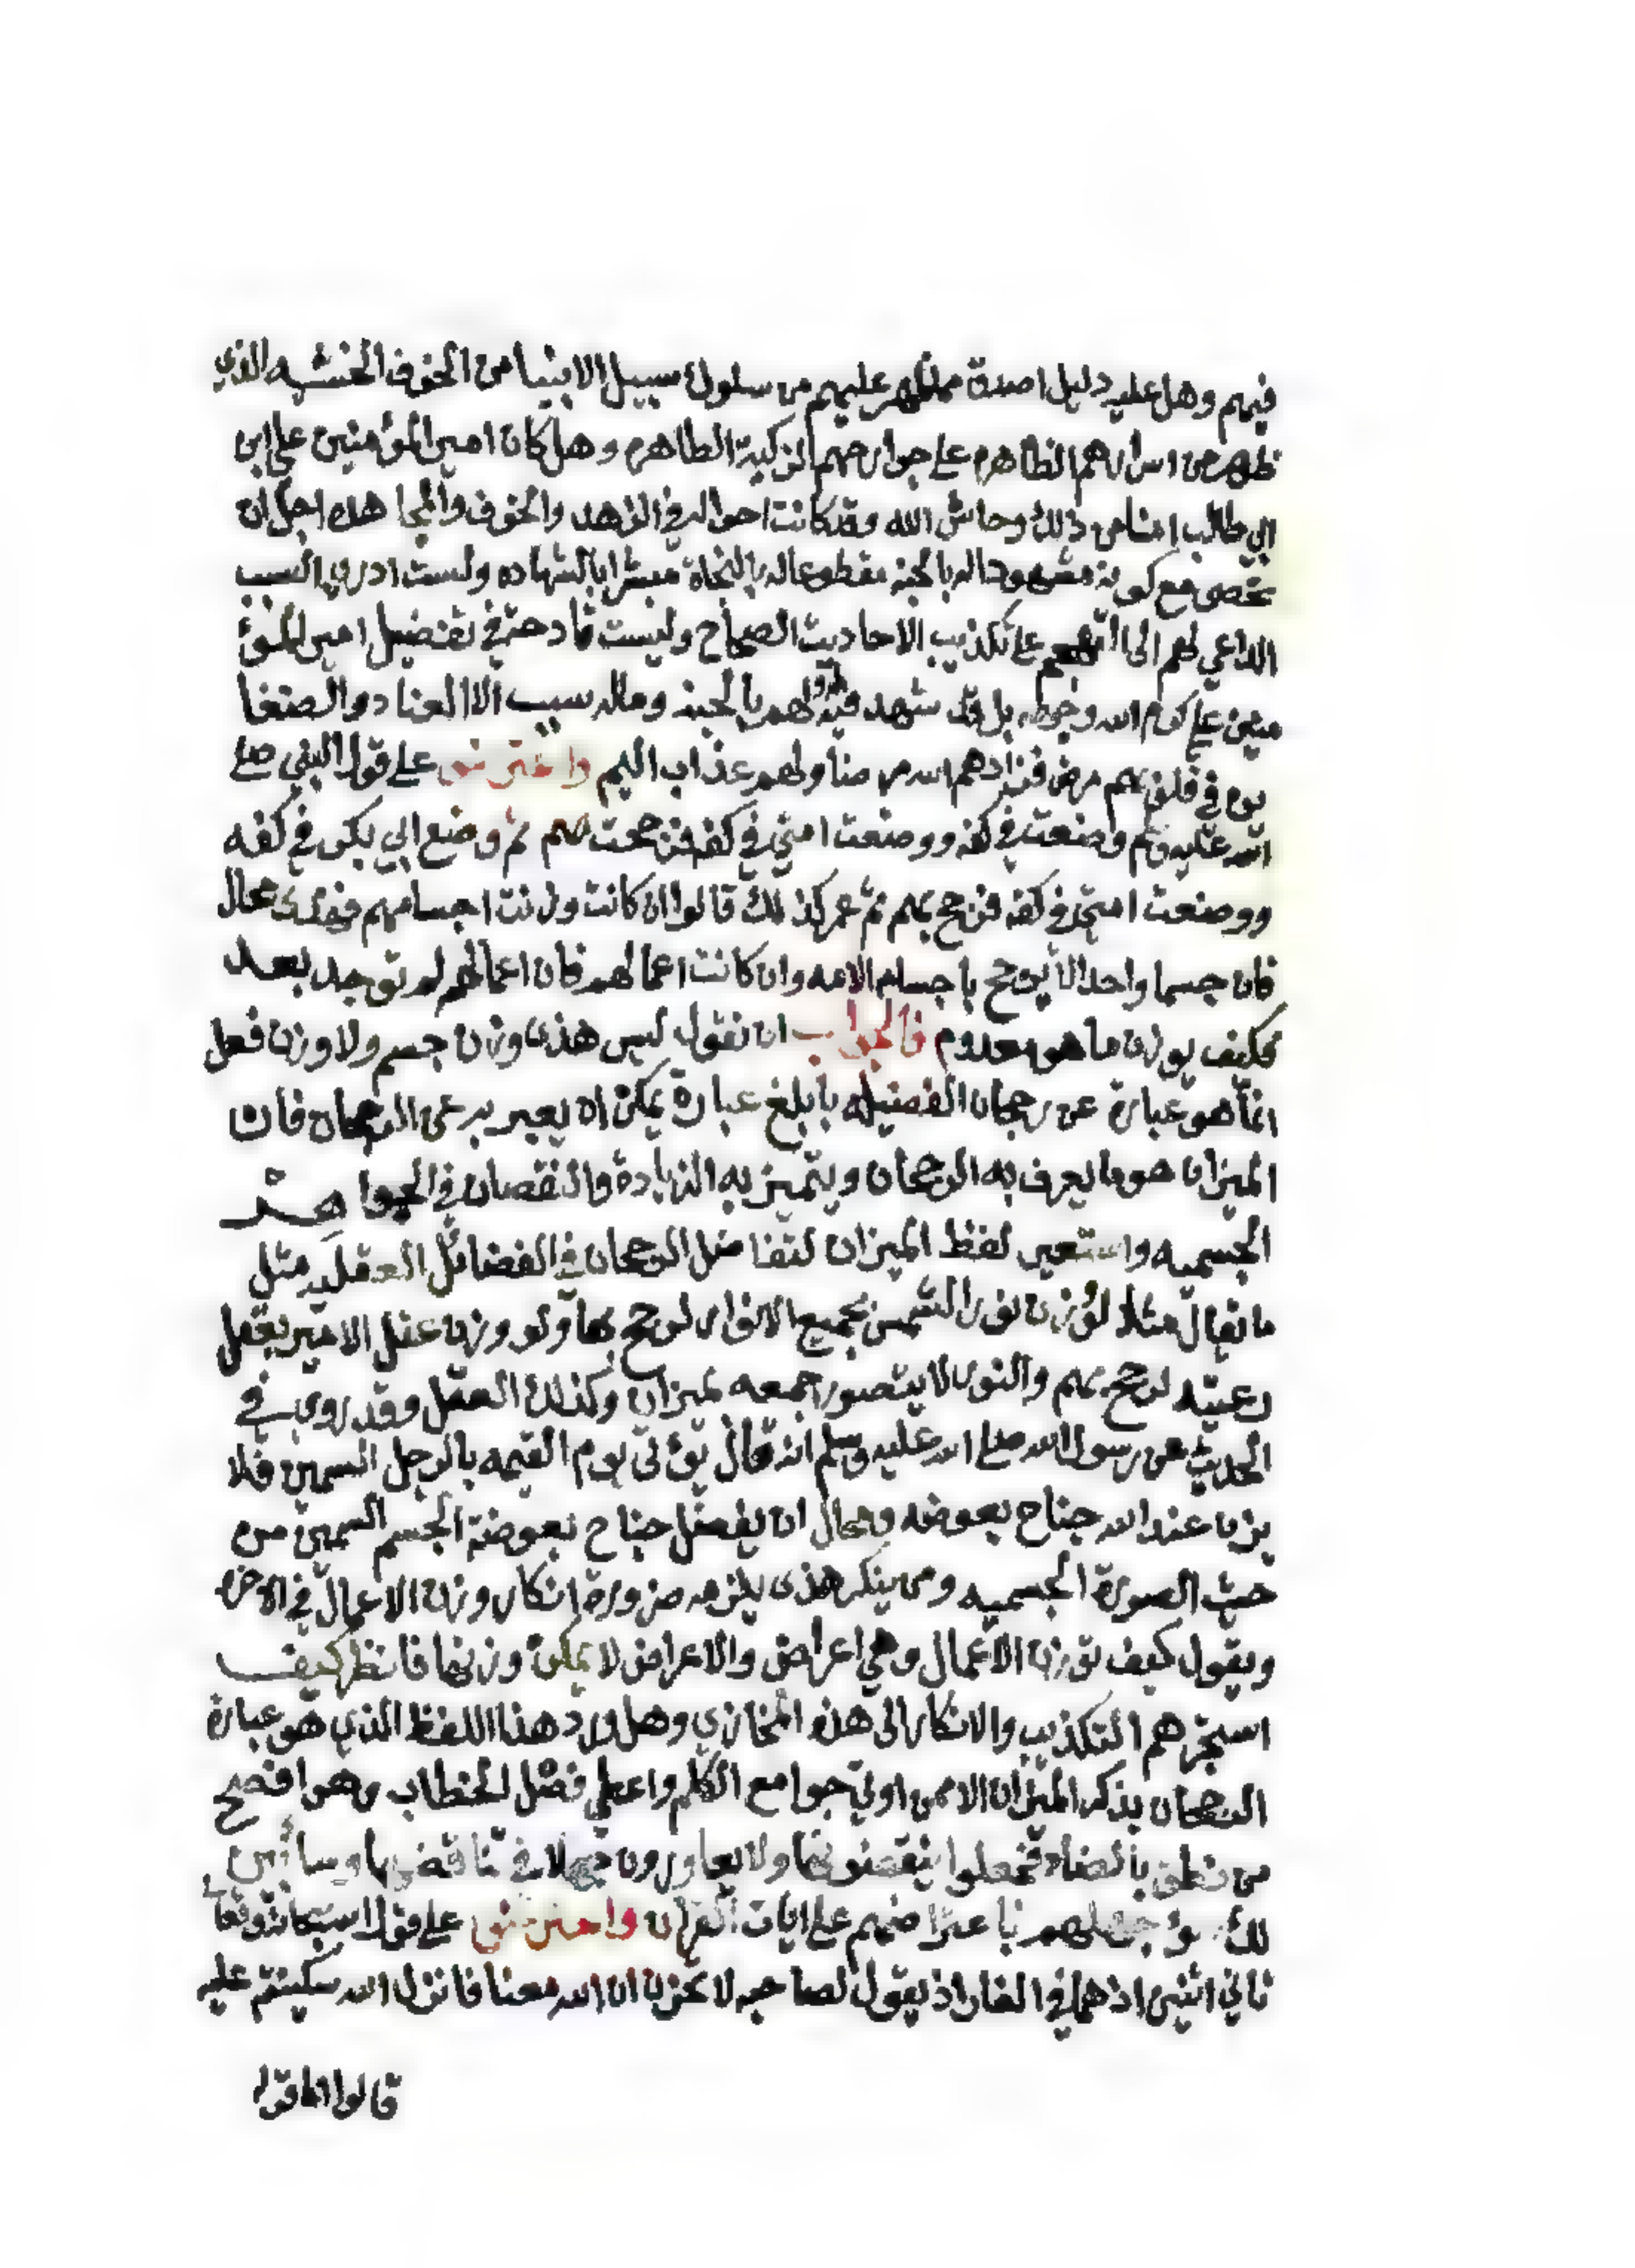 فيهم وهل عليه دليل اصدق مما ظهر عليهم من سلوك سبيل الانبيا من الخوف الخشيه الذي
ظهر من اسرارهم الطاهرة على جوارحهم الزكية الطاهره وهل كان امير المؤمنين علي ابن
ابي طالب امنا من ذلك وحاش الله وقد كانت احواله في الزهد والخوف والمجا هده اجل ان
تحصى مع كونه مشهودا له بالجنه مقطوعا له بالنجاة مبشرا بالشهاده ولست ادري السبب
الداعي لهم الى على تكذيب الاحاديث الصحاح وليست قادحة في تفضيل امير المؤ
منين علي كرم الله وجهه بل قد شهد فيه لهم بالجنه وماله سبب الا العناد والضغا
يون في قلوبهم مرض فزادهم الله مرضا ولهم عذاب اليم واعترضو على قول النبي صلى
الله عليه وسلم وضعت في كفه ووضعت امتي في كفه فرجحت بهم ثم وضع ابي بكر في كفه
ووضعت امتي في كفه فرجح بهم ثم عمر كذلك قالوا ان كانت وزنت اجسامهم فهذى محال
فان جسما واحدا لا يرجح باجسام الامه وان كانت اعمالهم فان اعمالهم لم توجد بعد
فكيف يوزن ما هو معدوم فالجواب ان نقول ليس هذى وزن جسم ولا وزن فعل
انما هو عبارة عن رجحان الفضيله بابلغ عبارة يمكن ان يعبر به عن الرجحان فان
الميزان هو ما يعرف به الرجحان ويتميز به الزيادة والنقصان في الجوا هر
الجسميه واستعير لفظ الميزان لتفاضل الرجحان في الفضائل العقليه مثل
ما يقال مثلا لو وزن نور الشمس بجميع الانوار لرجح بها ولو وزن عقل الامير بعقل
رعيته لرجح بهم والنور لا يتصور جمعه بميزان وكذلك العقل وقد روي في
الحديث عن رسول الله صلى الله عليه وسلم انه قال يؤتى يوم القيمه بالرجل السمين فلا
يزن عند الله جناح بعوضه ومحال ان يفضل جناح بعوضة الجسم السمين من
حيث الصورة الجسميه ومن ينكر هذى يلزمه ضرورة انكار وزن الاعمال في الاخره
ويقول كيف توزن الاعمال وهي اعراض والاعراض لا يمكن وزنها فانظر كيف
استجرهم التكذيب والانكار الى هذه المخازي وهل ورد هذا اللفظ الذي هو عبارة
الرجحان بذكر الميزان الا ممن اوتي جوامع الكلم واعطي فصل الخطاب وهو افصح
من نطق بالضاد فجعلوا ينقضونها ولا جهلا في تناقضها وسائس
باعتراضهم على ايات القران واعترضو على قول الله سبحانه وتعا
ثاني اثنين اذ هما في الغار اذ يقول لصاحبه لا تحزن ان الله معنا فانزل الله سكينته عليه
قالوا اما قوله